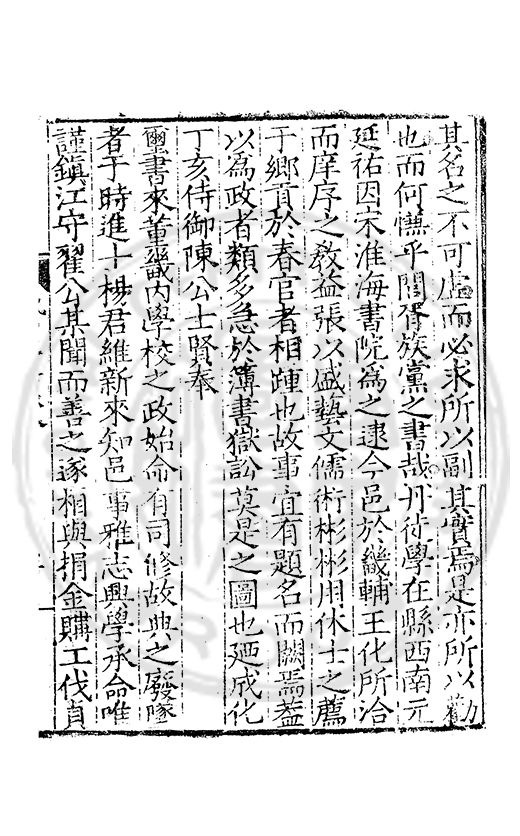 其名之不可虛而必求所以副其實焉是亦所以勸
也而何慊乎閭胥族黨之書哉丹徒學在縣西南元
延祐因宋淮海書院為之逮今邑於畿輔王化所洽
而庠序之教益張以盛藝文儒術彬彬用休士之薦
于鄉貢於春官者相踵也故事宜有題名而闕焉蓋
以為政者類多急於簿書獄訟莫是之圖也廼成化
丁亥侍御陳公士賢奉
璽書來董畿內學校之政始命有司修故典之廢墜
者于時進士楊君維新來知邑事雅志興學承命唯
謹鎮江守翟公某聞而善之遂相與捐金購工伐貞